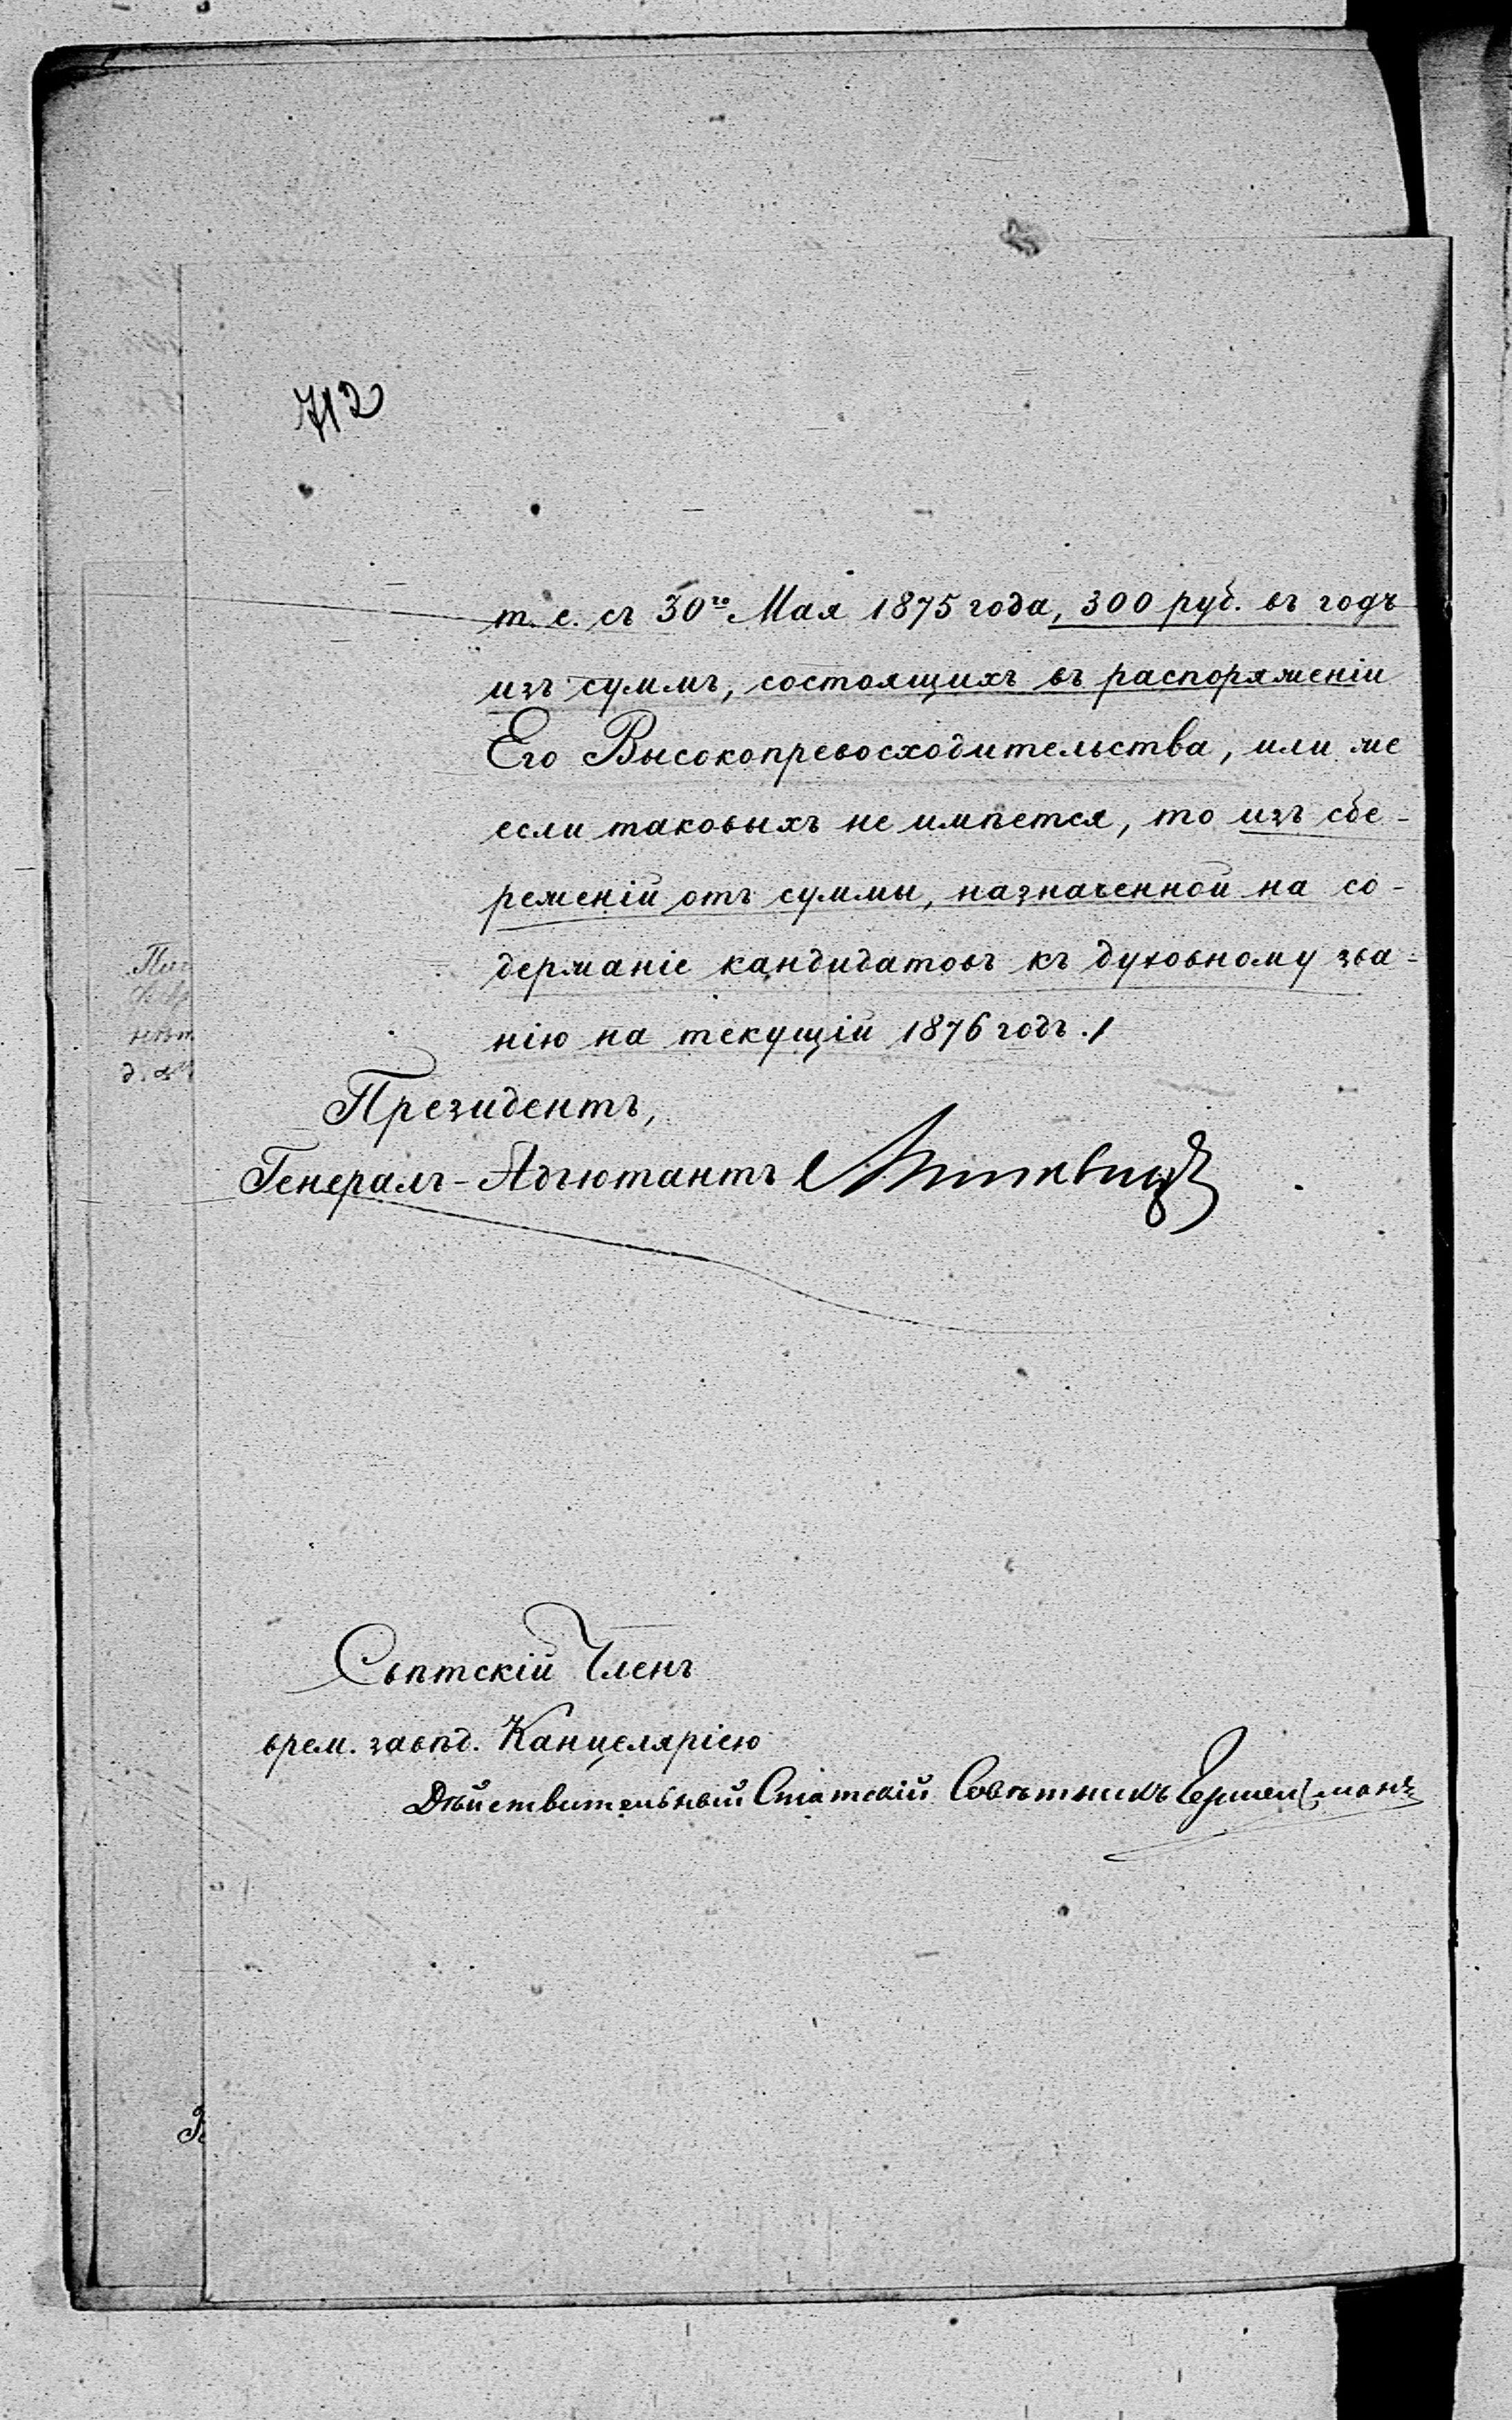 712
т. е. съ 30го Мая 1875 года, 300 руб. въ годъ
изъ суммъ, состоящихъ въ распоряженіи
Его Высокопревосходительства, или же
если таковыхъ не имѣется, то изъ сбе-
реженій отъ суммы, назначенной на со-
держаніе кандидатовъ къ духовному зва-
нію на текущій 1876 годъ.
Президентъ,
Генералъ-Адъютантъ
Свѣтскій Членъ
врем. завѣд. Канцеляріею
Дѣйствительный Статскій Совѣтникъ